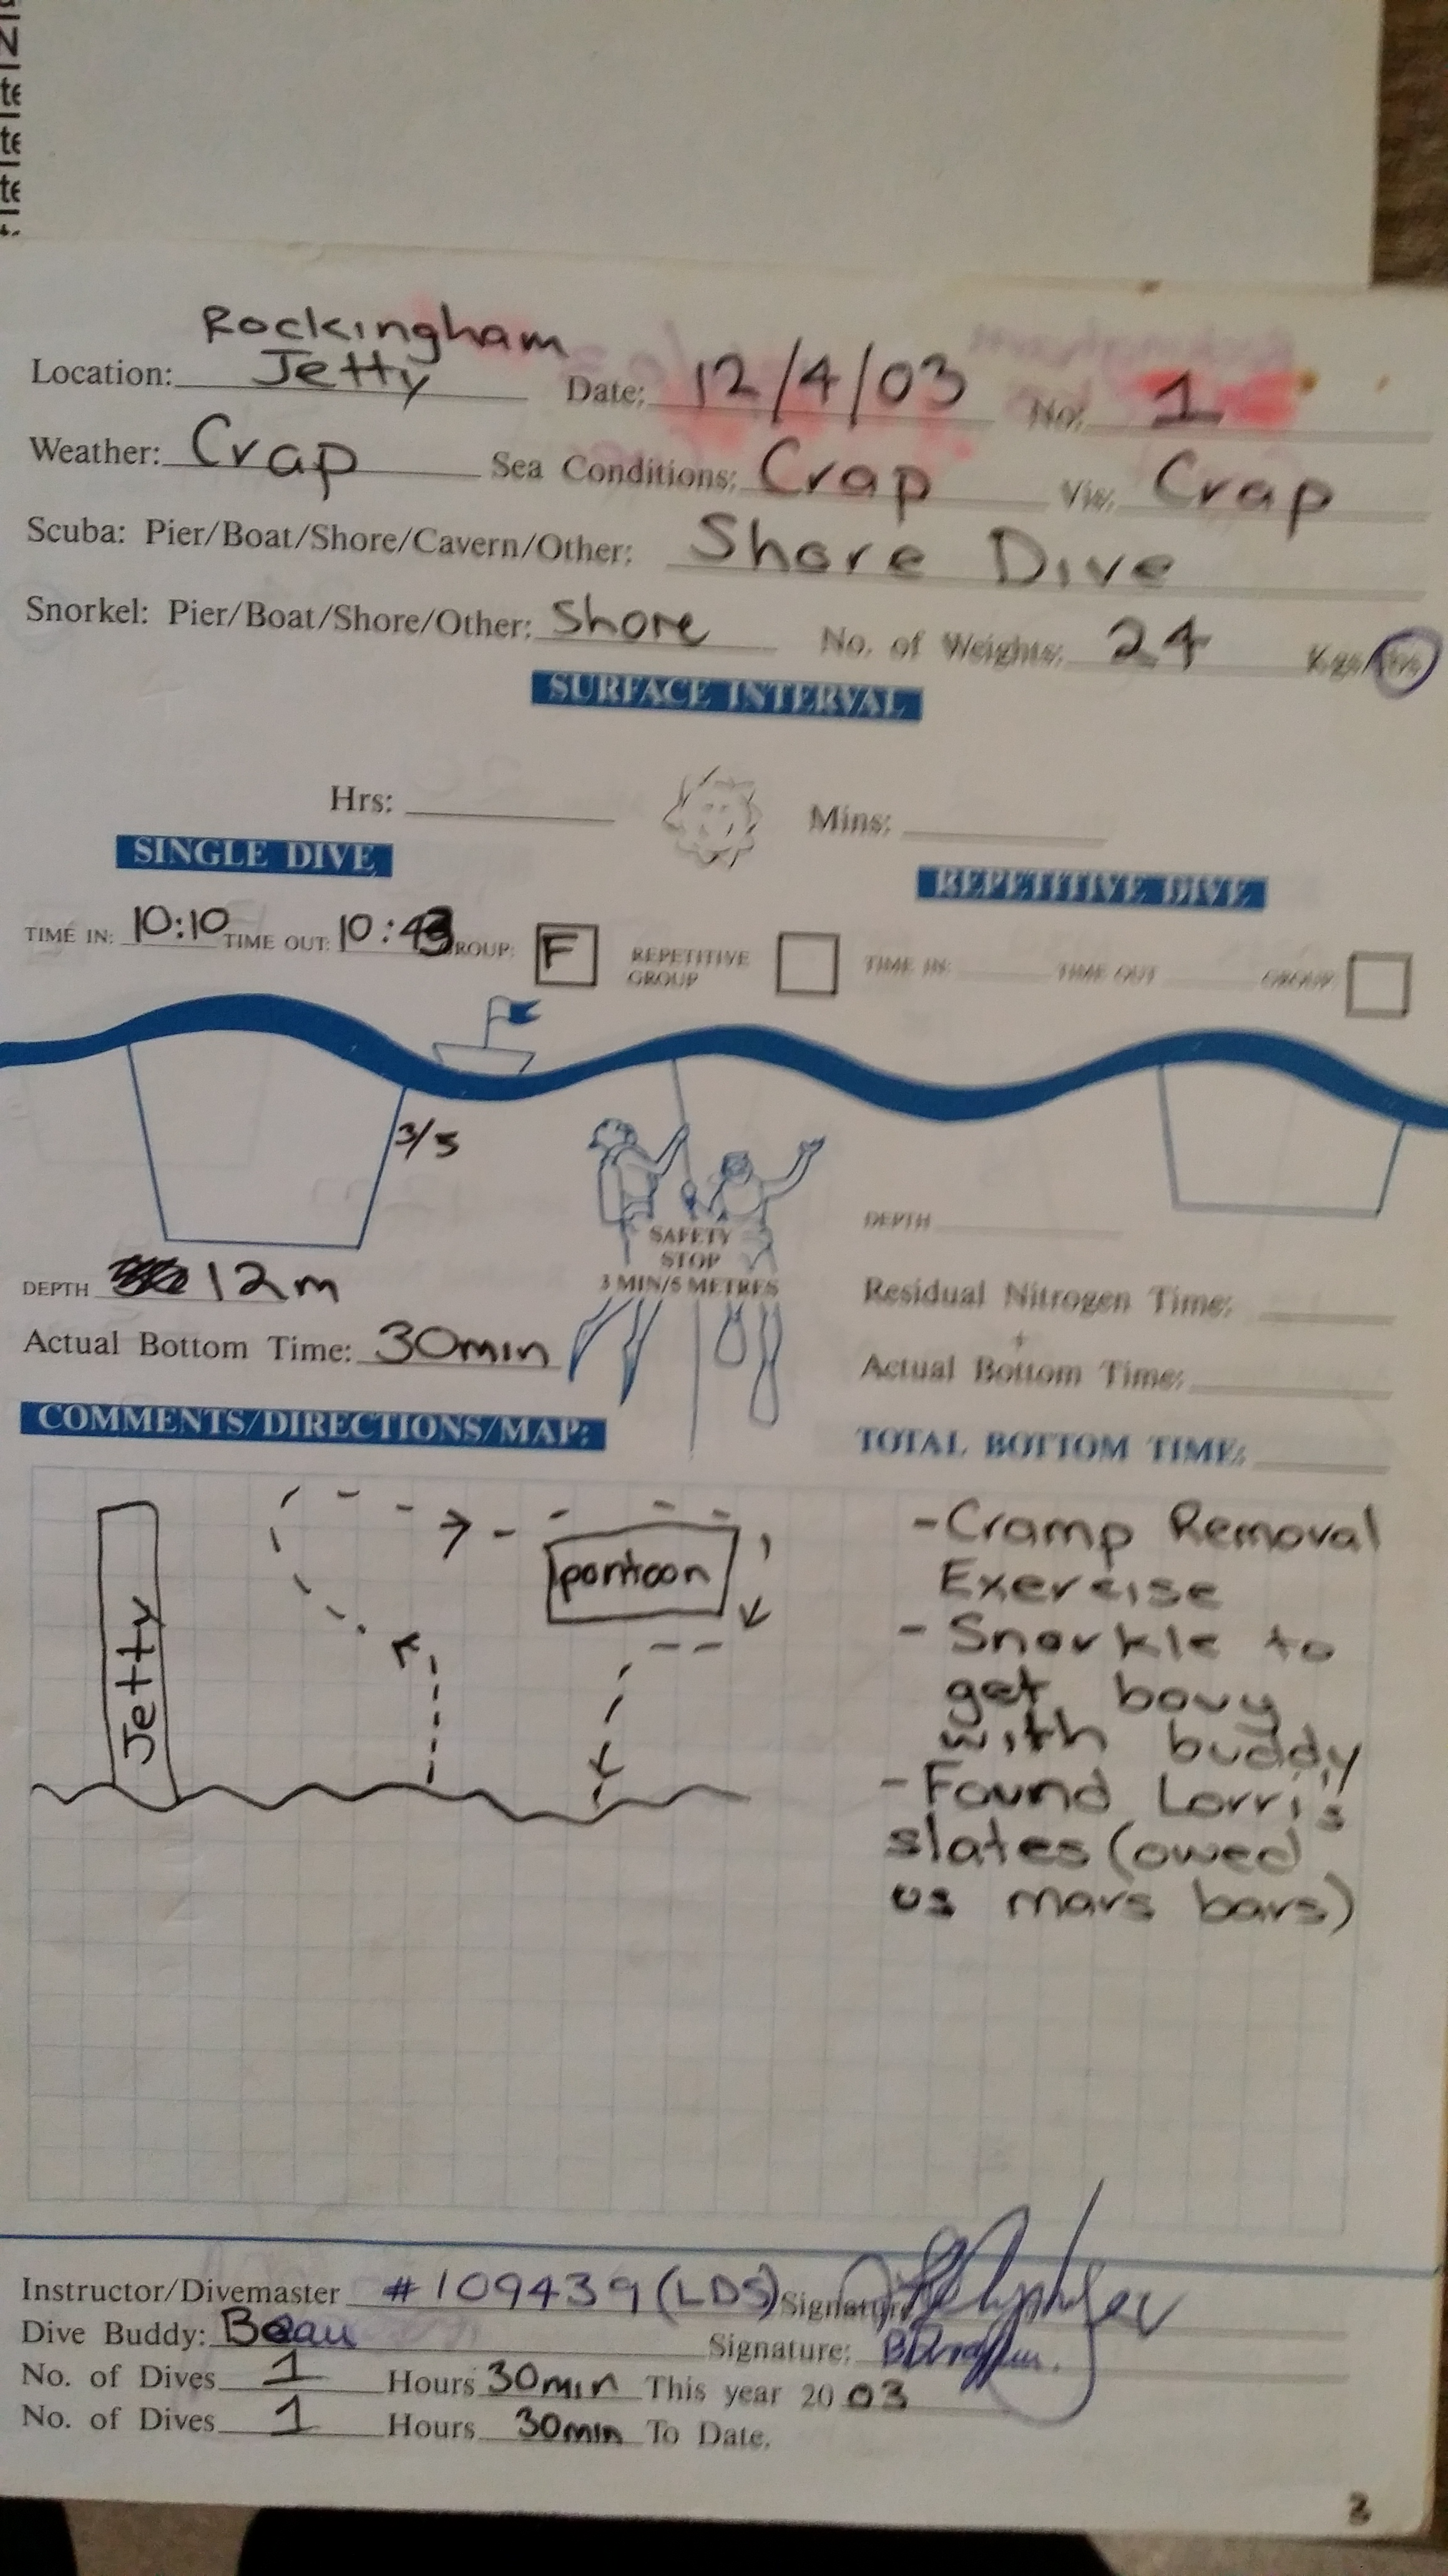 Rockingham
Location: Jetty Date: 12/4/03 No: 1
Weather: Crap Sea Conditions: Crap Vis: Crap
Scuba: Pier/Boat/Shore/Cavern/Other: Shore Dive
Snorkel: Pier/Boat/Shore/Other: Shore No. of Weights: 24 Kgs/lbs
SURFACE INTERVAL
Hrs: Mins:
SINGLE DIVE REPETITIVE DIVE
TIME IN: 10:10 TIME OUT: 10:43 GROUP: F REPETITIVE GROUP TIME IN: TIME OUT GROUP:
3/5
SAFETY
STOP
3 MIN/5 METRES
DEPTH 12m
DEPTH
Actual Bottom Time: 30min
Residual Nitrogen Time:
+
Actual Bottom Time:
TOTAL BOTTOM TIME:
COMMENTS/DIRECTIONS/MAP:
Jetty
pontoon
- Cramp Removal
Exercise
- Snorkle to
get bouy
with buddy
- Found Lorri's
slates (owed
us mars bars)
Instructor/Divemaster #109439 (LDS) Signature:
Dive Buddy: Beau Signature:
No. of Dives 1 Hours 30min This year 2003
No. of Dives 1 Hours 30min To Date.
3